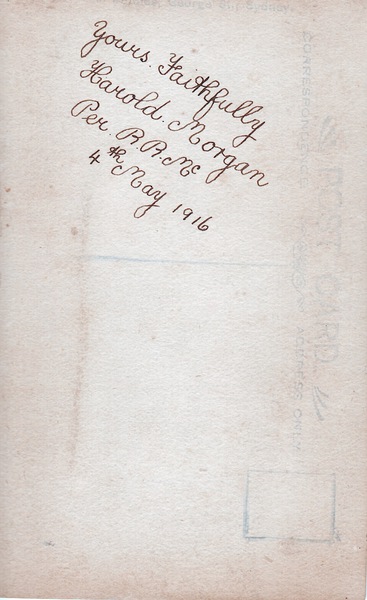 George St., Sydney.
Yours. Faithfully
Harold. Morgan
Per. R.R. Mc
4th May 1916
POST CARD
CORRES
ADDRESS ONLY